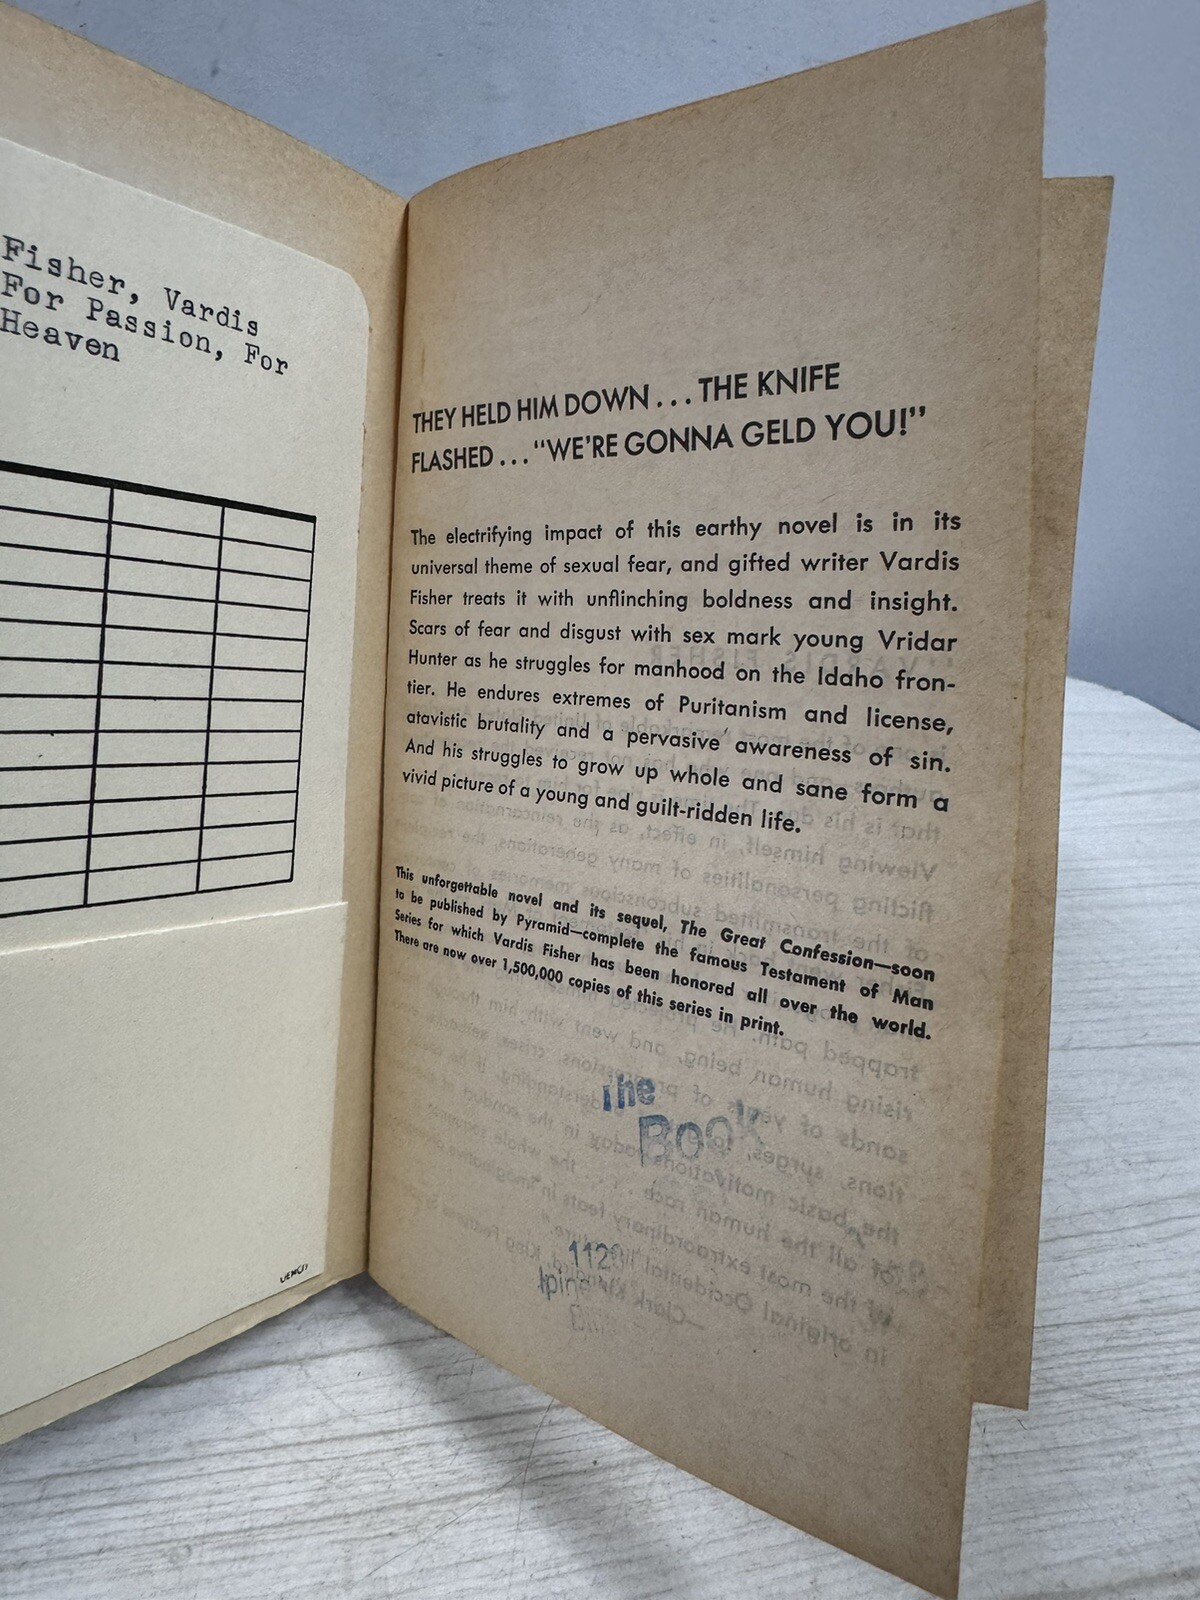 Fisher, Vardis
For Passion, For
Heaven
DEMCO
THEY HELD HIM DOWN . . . THE KNIFE
FLASHED . . . “WE’RE GONNA GELD YOU!”
The electrifying impact of this earthy novel is in its
universal theme of sexual fear, and gifted writer Vardis
Fisher treats it with unflinching boldness and insight.
Scars of fear and disgust with sex mark young Vridar
Hunter as he struggles for manhood on the Idaho fron-
tier. He endures extremes of Puritanism and license,
atavistic brutality and a pervasive awareness of sin.
And his struggles to grow up whole and sane form a
vivid picture of a young and guilt-ridden life.
This unforgettable novel and its sequel, The Great Confession—soon
to be published by Pyramid—complete the famous Testament of Man
Series for which Vardis Fisher has been honored all over the world.
There are now over 1,500,000 copies of this series in print.
The
Book